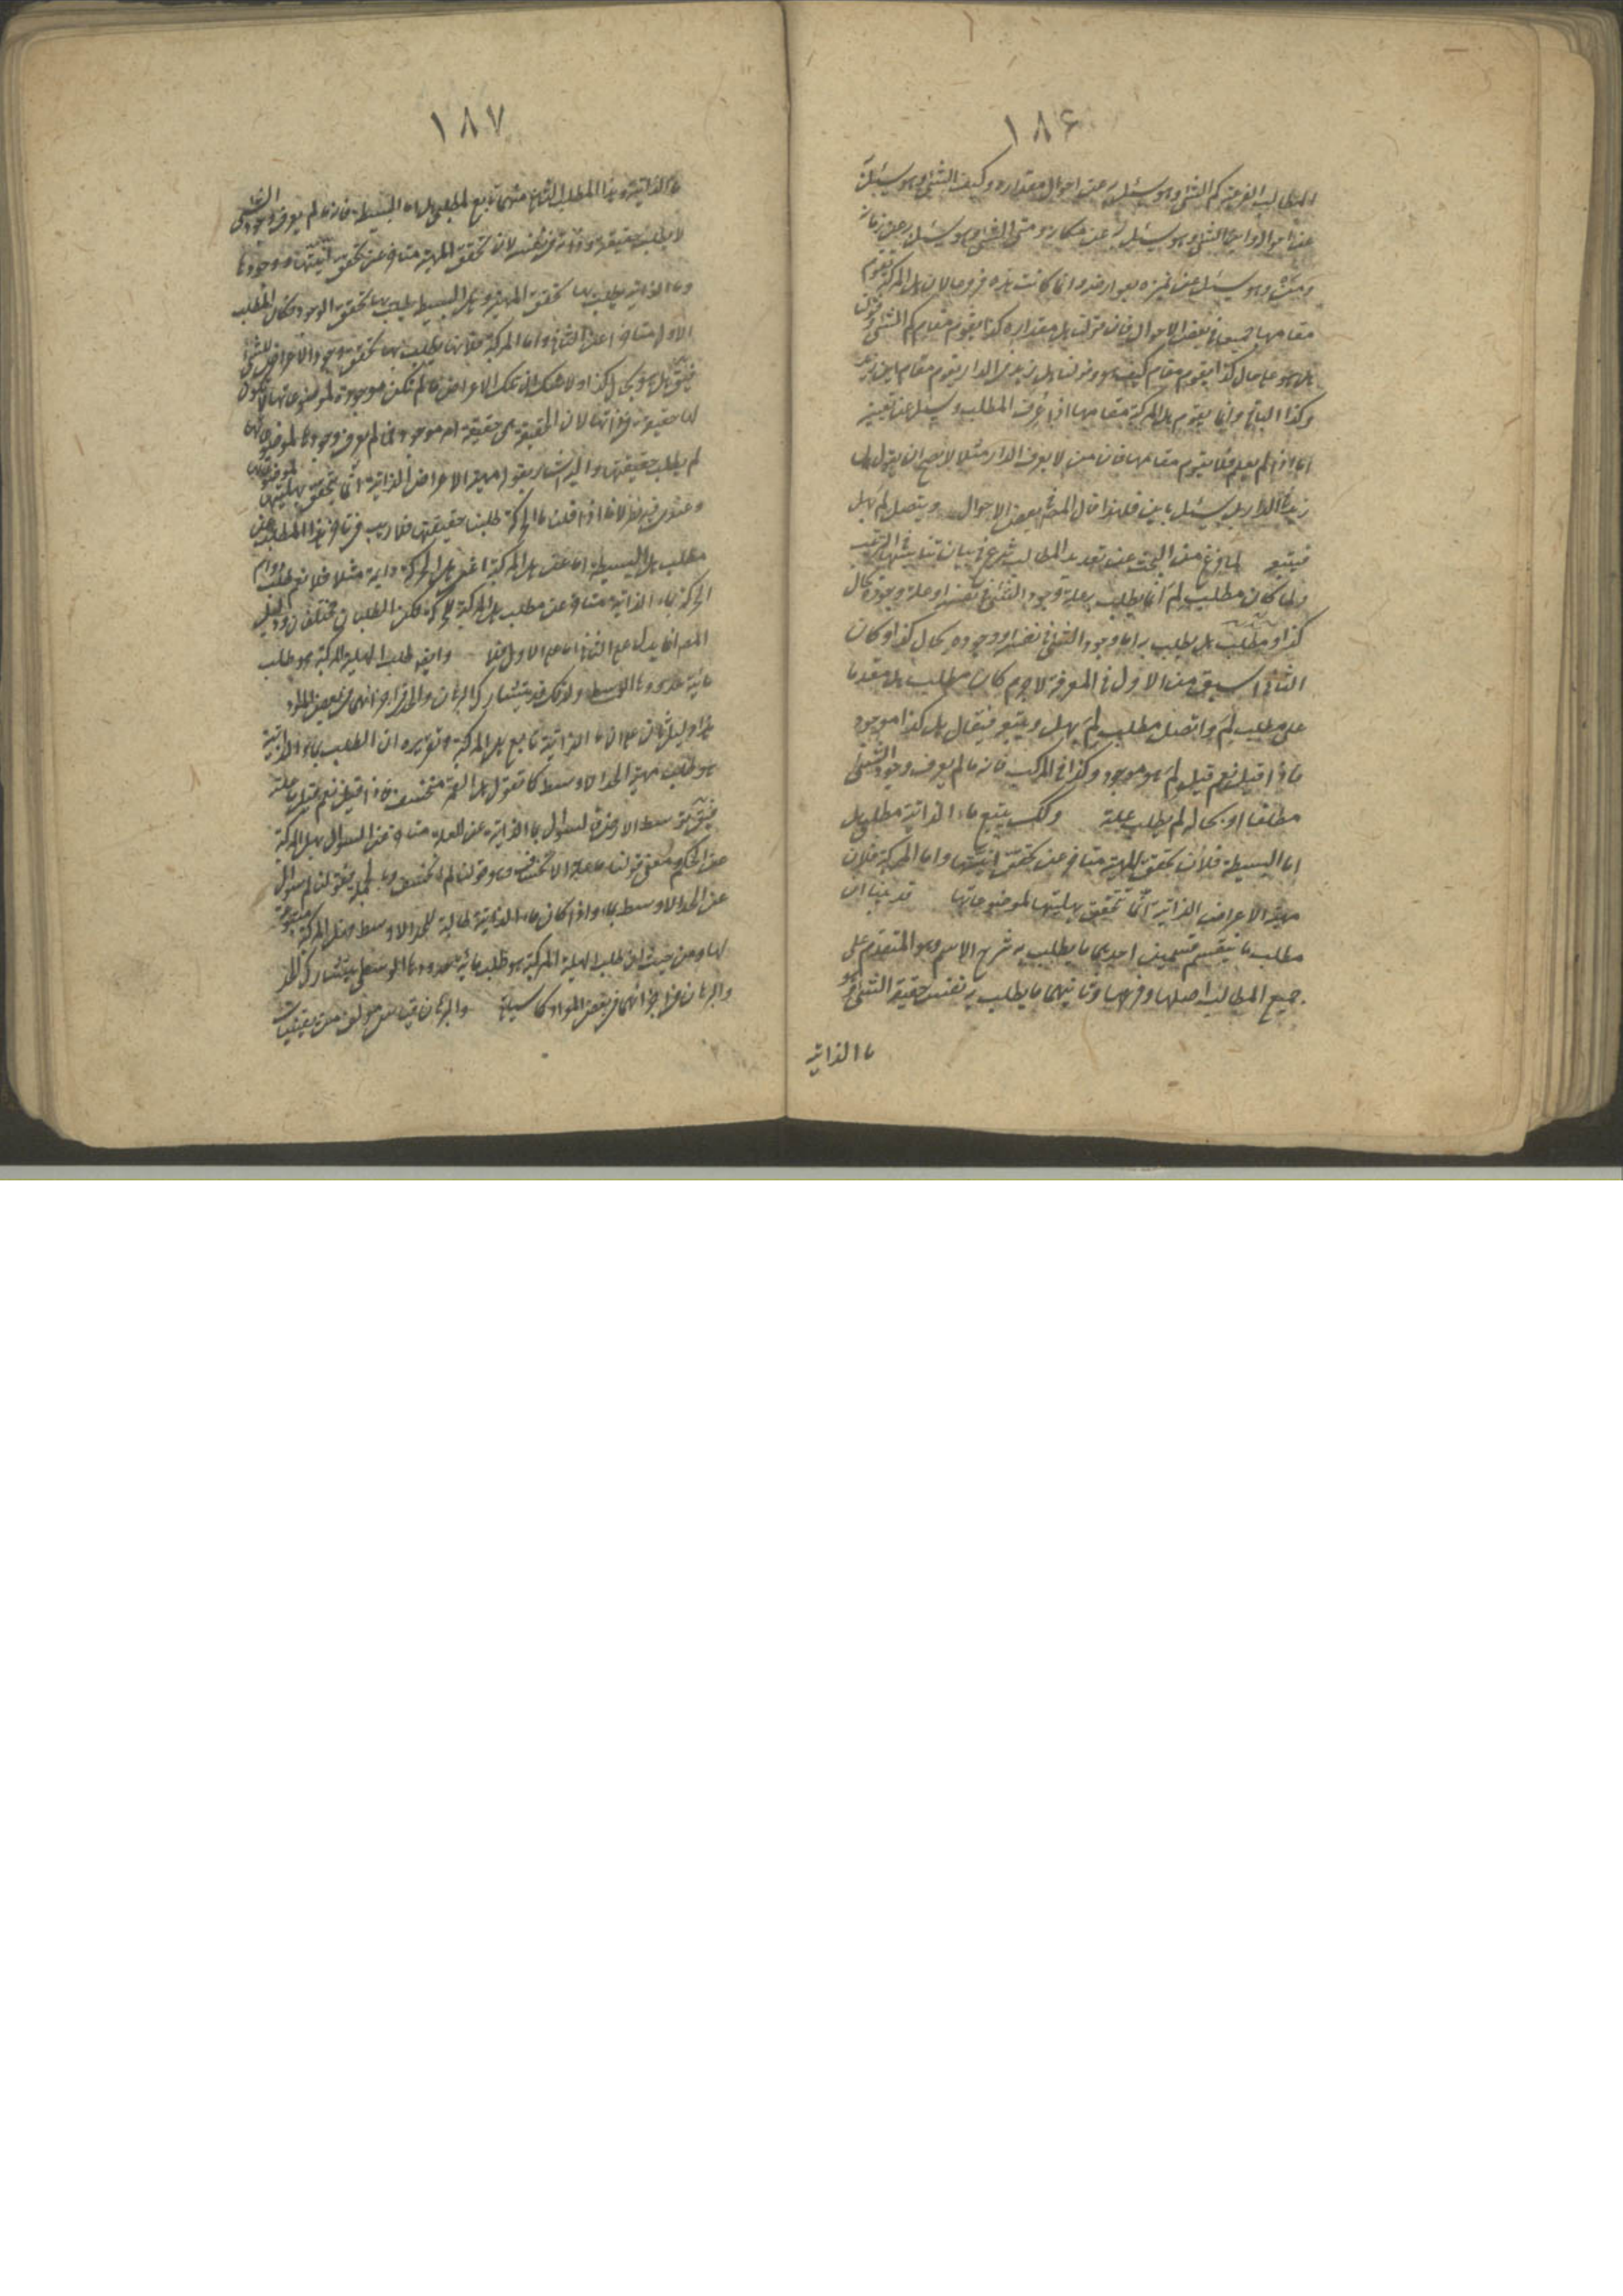 ١٨۶
المطالب الفرعية كم الشئ وهو سئل به عن احوال مقداره وكيف الشئ وهو سئل به
عن احواله واين الشئ وهو سئل به عن مكانه ومتى الشئ وهو سئل به عن زمانه
ومن وهو سئل عن تميزه بعوارضه وانما كانت هذه فروعا لان هل المركبة تقوم
مقامها جميعا في بعض الاحوال فان قولنا هل مقداره كذا يقوم مقام كم الشئ وقولنا
هل هو على حال كذا يقوم مقام كيف هو وقولنا هل زيد في الدار يقوم مقام اين زيد
وكذا البواقي وانما يقوم هل المركبة مقامها اذا عرف المطلب وسئل عن تعيينه
اما اذا لم يعلم فلا يقوم مقامها فان من لا يعرف الدار مثلا لا يصح ان يقول هل
زيد في الدار بل سئل باين فلهذا قال المصنف بعض الاحوال ويتصل لم بهل
فيتبع لما فرغ من البحث عن تعديد المطالب شرع في بيان تناسبها في الترتيب
ولما كان مطلب لم انما يطلب به علة وجود الشئ في نفسه او علة وجوده بحال
كذا ومطلب هل يطلب به اما وجود الشئ في نفسه او وجوده بحال كذا وكان
الثاني اسبق من الاول في المعرفة لاجرم كان مطلب هل مقدما
على مطلب لم واتصل مطلب لم بهل ويتبعه فيقال هل كذا موجود
فاذا قيل نعم قيل لم هو موجود وكذا في المركب فانه ما لم يعرف وجود الشئ
مطلقا او بحاله لم يطلب علته وكذلك يتبع ماء الذاتية مطلبي هل
اما البسيطة فلأن تحقق المهية متاخر عن تحقق انيتها واما المركبة فلأن
مهية الاعراض الذاتية انما تتحقق بهليتها لموضوعاتها قد بينا ان
مطلب ما ينقسم قسمين احديهما ما يطلب به شرح الاسم وهو المتقدم على
جميع المطالب اصلها وفرعها وثانيهما ما يطلب به نفس حقيقة الشئ وهو
ما الذاتية
١٨٧
ما الذاتية وهذا المطلب الثاني منهما تابع لمطلبي هل اما البسيطة فانه ما لم يعرف وجود الشئ
لا يطلب حقيقته وذاته في نفسه لان تحقق المهية متاخر عن تحقق انيتها ووجودها
وما الذاتية يطلب بها تحقق المهية وهل البسيطة يطلب بها تحقق الوجود فكان المطلب
الاول متاخرا عن الثاني واما المركبة فلأنها يطلب بها تحقق وجود الاعراض للشئ
فيقال هل هو بحال كذا او لا ولا شك ان تلك الاعراض ما لم تكن موجودة لموضوعاتها لا تكون
لها حقيقة في ذاتها لان الحقيقة هي حقيقة امر موجود فما لم يعرف وجودها لموضوعاتها
لم يطلب حقيقتها واليه اشار بقوله مهية الاعراض الذاتية انما تتحقق بهليتها لموضوعاتها
وعندي فيه نظر لانا اذا قلنا ما الحركة طلبنا حقيقتها فلا ريب في تاخر هذا المطلب عن
مطلب هل البسيطة اما عن هل المركبة اعني هل الحركة دائمة مثلا فلا نعم طلب دوام
الحركة بماء الذاتية متاخر عن مطلب هل المركبة للحركة لكن المطلبان مختلفان ودليل
المصنف انما يدل على الثاني اما على الاول فلا وايضا طلب الهلية المركبة هو طلب
مائية حدود ما الاوسط ولذلك قد يتشارك البرهان والحد في اجزائهما في بعض المواد
هذا دليل ثان على ان ما الذاتية تابع هل المركبة وتقريره ان الطلب بماء الذاتية
هو طلب مهية الحد الاوسط كما تقول هل القمر منخسف فاذا قيل نعم قيل ما علته
فيقال توسط الارض فالسؤال بما الذاتية عن العلة متاخر عن السؤال بهل المركبة
عن الحكم فمعنى قولنا ما علة الانخساف وهو قولنا لم انخسف وبالجملة فقولنا لم سؤال
عن الحد الاوسط بماء واذا كان ماء الذاتية طالبة للحد الاوسط فهل المركبة متبوعة
لها ومن حيث ان طلب الهلية المركبة هو طلب مائية حدود ما الاوسط يتشارك الحد
والبرهان في اجزائهما في بعض المواد كما سيأتي والبرهان قياس مؤلف من يقينيات